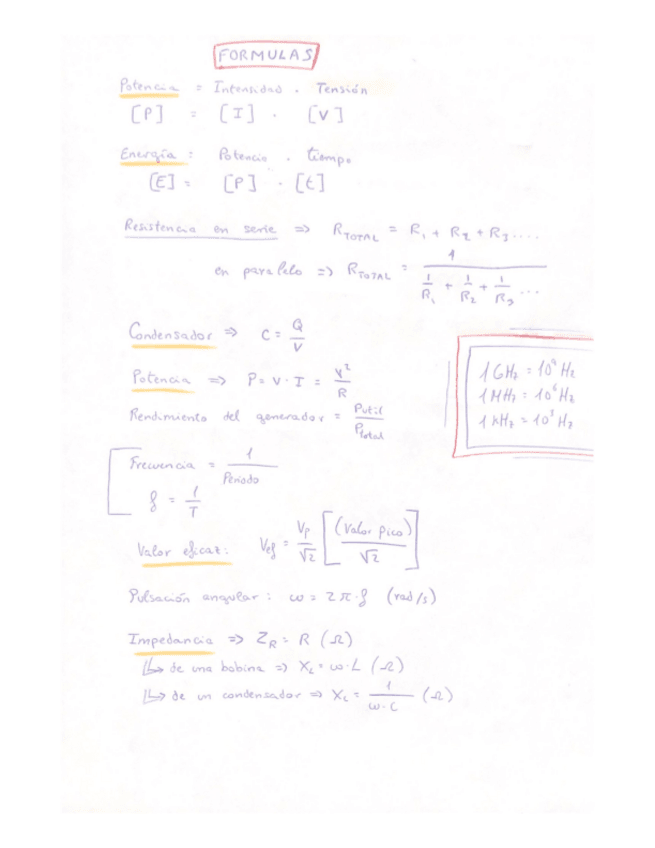 FORMULAS
Potencia = Intensidad . Tensión
[P] = [I] . [V]
Energía : Potencia . tiempo
[E] = [P] . [t]
Resistencia en serie => R_TOTAL = R₁ + R₂ + R₃ ....
en paralelo => R_TOTAL = 1 / (1/R₁ + 1/R₂ + 1/R₃ ...)
Condensador => C = Q/V
Potencia => P = V · I = V²/R
Rendimiento del generador = Putil/Ptotal
1 GHz = 10⁹ Hz
1 MHz = 10⁶ Hz
1 kHz = 10³ Hz
Frecuencia = 1/Periodo
f = 1/T
Valor eficaz: Vef = Vp/√2 [(Valor pico)/√2]
Pulsación angular : ω = 2π·f (rad/s)
Impedancia => Z_R = R (Ω)
↳ de una bobina => X_L = ω·L (Ω)
↳ de un condensador => X_C = 1/(ω·C) (Ω)